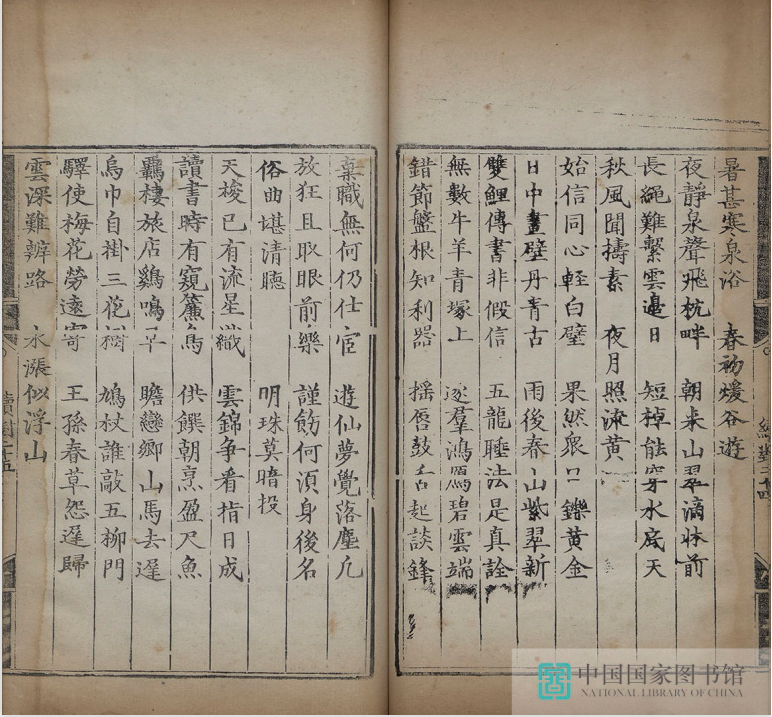 暑甚寒泉浴 春初煖谷遊
夜靜泉聲飛枕畔 朝來山翠滴牀前
長繩難繫雲邊日 短棹能穿水底天
秋風聞擣素 夜月照流黃
始信同心輕白璧 果然眾口鑠黃金
日中畫壁丹青古 雨後春山紫翠新
雙鯉傳書非假信 五龍睡法是真詮
無數牛羊青塚上 逐羣鴻鴈碧雲端
錯節盤根知利器 搖唇鼓舌起談鋒
棄職無何仍仕宦 遊仙夢覺落塵凡
放狂且取眼前樂 謹飭何須身後名
俗曲堪清聽 明珠莫暗投
天梭已有流星織 雲錦爭看指日成
讀書時有窺簾鳥 供饌朝烹盈尺魚
羈棲旅店鷄鳴早 瞻戀鄉山馬去遲
烏巾自掛三花樹 鳩杖誰敲五柳門
驛使梅花勞遠寄 王孫春草怨遲歸
雲深難辨路 水漲似浮山
中国国家图书馆
NATIONAL LIBRARY OF CHINA